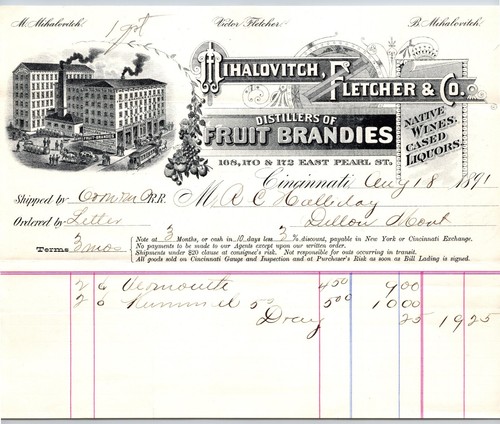 M. Mihalovitch. Victor Fletcher. B. Mihalovitch.
1 pt
MIHALOVITCH, FLETCHER & CO.
DISTILLERS OF
FRUIT BRANDIES
NATIVE
WINES.
CASED
LIQUORS.
168, 170 & 172 EAST PEARL ST.,
Cincinnati, Aug 18 1891
Shipped by R.R. M R C Halliday
Ordered by Letter Dillon Mont
Terms 3 mos
Note at 3 Months, or cash in 10 days less 3 % discount, payable in New York or Cincinnati Exchange.
No payments to be made to our Agents except upon our written order.
Shipments under $20 clause at consignee's risk. Not responsible for outs occurring in transit.
All goods sold on Cincinnati Gauge and Inspection and at Purchaser's Risk as soon as Bill Lading is signed.
2 6 Vermouth 4 50 9 00
2 6 Kummel 5 00 10 00
Dray 25 19 25